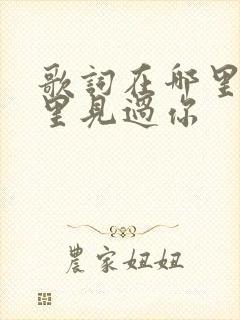 歌詞在哪里
里見過你
農家妞妞